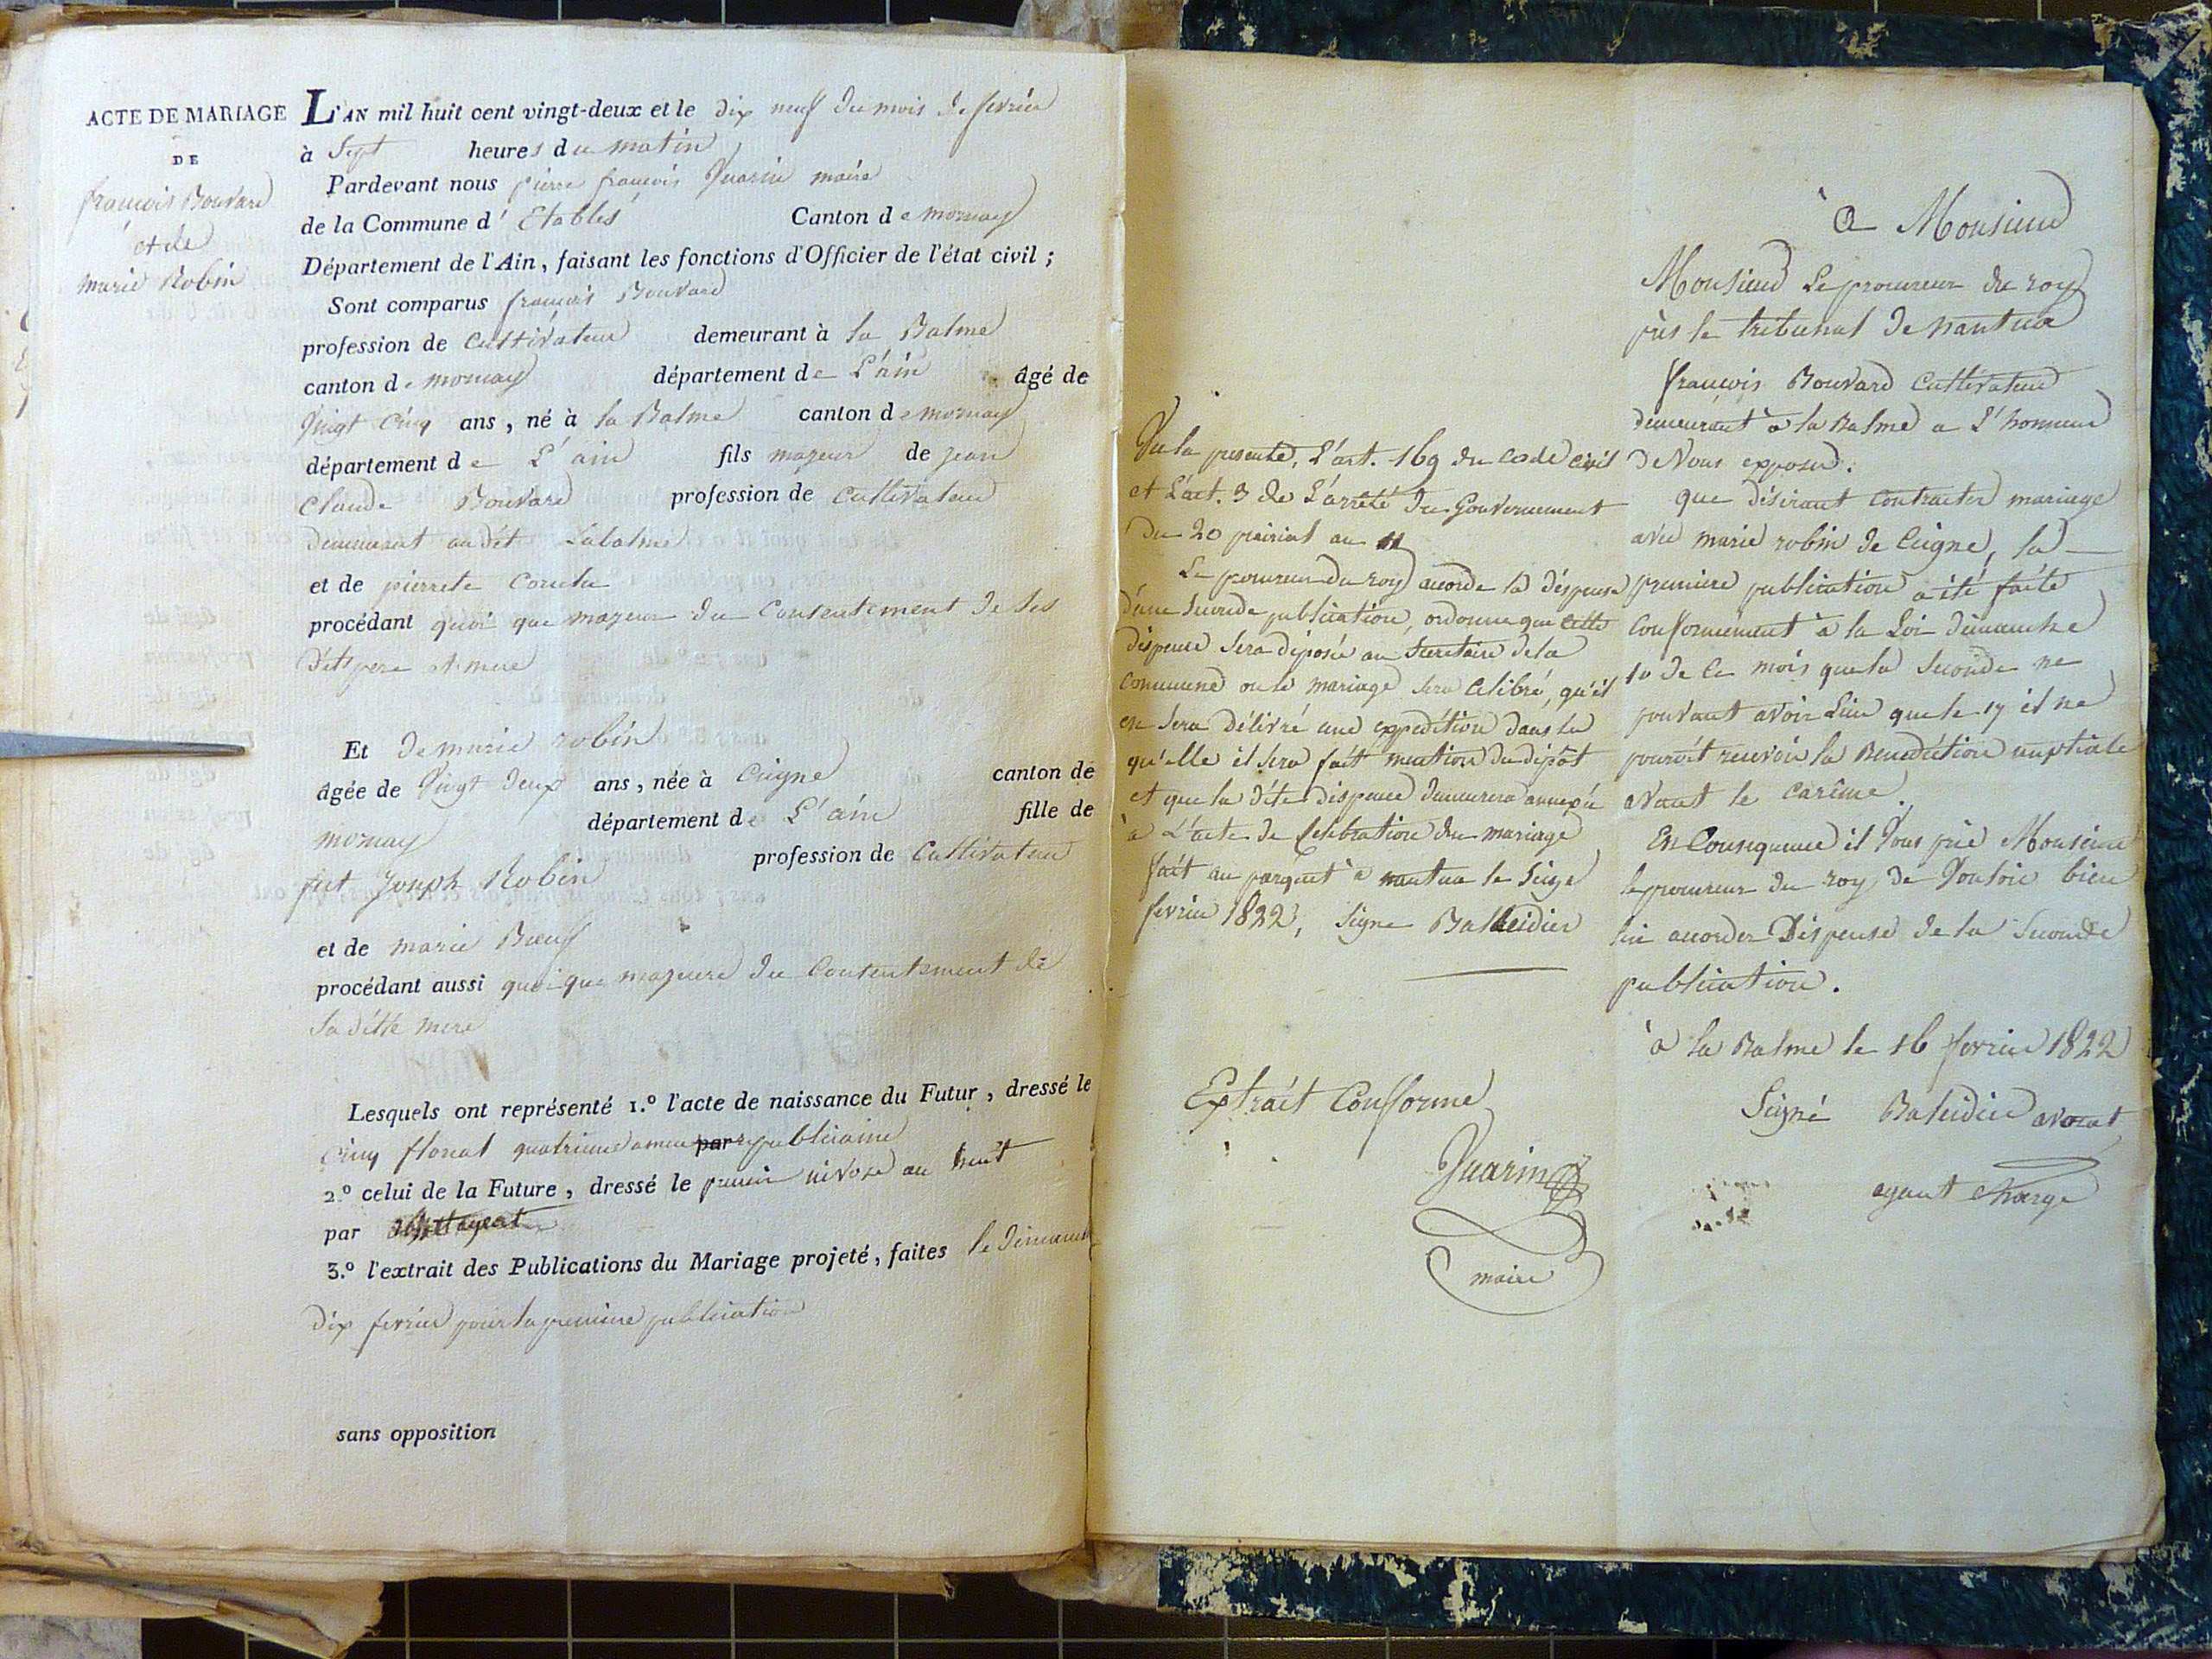 ACTE DE MARIAGE
DE
françois Bouvard
et de
marie Robin
L'AN mil huit cent vingt-deux et le dix neuf du mois de fevrier
à Sept heures du matin
Pardevant nous pierre françois Juarin maire
de la Commune d' Etables Canton de mornay
Département de l'Ain, faisant les fonctions d'Officier de l'état civil ;
Sont comparus françois Bouvard
profession de Cultivateur demeurant à la Balme
canton de mornay département de L'ain âgé de
Vingt Cinq ans, né à la Balme canton de mornay
département de L'ain fils majeur de jean
Claude Bouvard profession de Cultivateur
demeurant audit Labalme
et de pierrete
procédant quoi que majeur du Consentement de ses
dits pere et mere
Et de marie robin
âgée de Vingt deux ans, née à Ceigne canton de
mornay département de L'ain fille de
fut Joseph Robin profession de Cultivateur
et de marie Bœuf
procédant aussi quoique majeure du Consentement de
sa ditte mere
Lesquels ont représenté 1.º l'acte de naissance du Futur, dressé le
Cinq floréal quatrieme année par republicaine
2.º celui de la Future, dressé le premier nivose an huit
par
3.º l'extrait des Publications du Mariage projeté, faites le dimanche
dix fevrier pour la premiere publication
sans opposition
Vu la presente, L'art. 169 du code civil
et L'art. 3 de L'arrêté du Gouvernement
du 20 prairial an 11
Le procureur du roy acorde la dispense
d'une seconde publication, ordonne que cette
dispense sera déposée au Secretaire de la
Commune ou le mariage sera célébré, qu'il
en sera délivré une expedition dans la
qu'elle il sera fait mention du dépôt
et que la dite dispence demeurera annexée
à L'acte de Celebration du mariage
fait au parquet à nantua le Seize
fevrier 1822, Signe Balleidier
Extrait Conforme
Juarin
maire
à Monsieur
Monsieur Le procureur du roy
près le tribunal de nantua
françois Bouvard Cultivateur
demeurant à la Balme a L'honneur
de Vous exposer.
que désirant contracter mariage
avec marie robin de Ceigne, la
premiere publication a été faite
Conformément à la Loi dimanche
10 de ce mois que la seconde ne
pouvant avoir Lieu que le 17 il ne
pouroit recevoir la Benediction nuptiale
avant le carême.
En Consequence il Vous prie Monsieur
le procureur du roy de Vouloir bien
lui accorder Dispense de la Seconde
publication.
à la Balme le 16 fevrier 1822
Signé Baleidier avocat
ayant charge